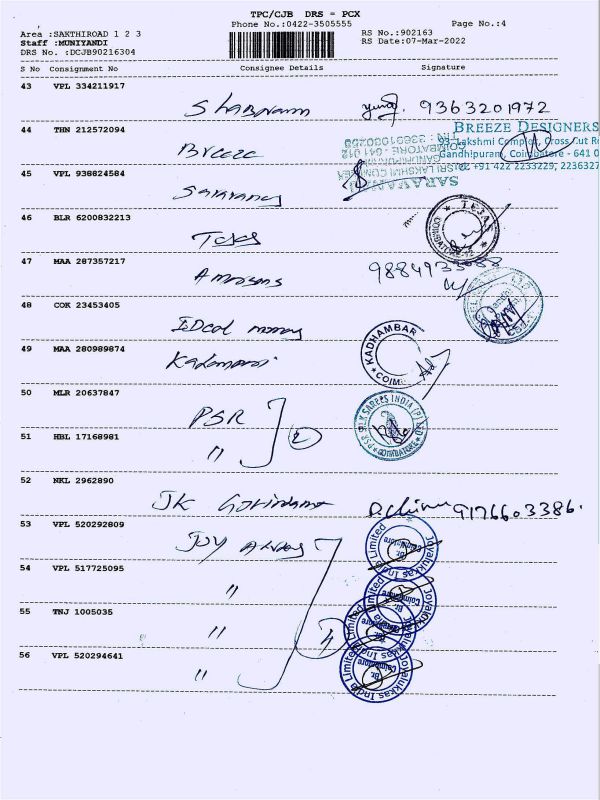 TPC/CJB DRS - PCX
Phone No.:0422-3505555 Page No.:4
Area :SAKTHIROAD 1 2 3 RS No.:902163
Staff :MUNIYANDI RS Date:07-Mar-2022
DRS No. :DCJB90216304
S No Consignment No Consignee Details Signature
43 VPL 334211917
Shabnam 9363201972
44 THN 212572094
BREEZE DESIGNERS
Breeze
Gandhipuram, Coimbatore - 641 0
+91 422 2233229, 2236327
45 VPL 938624584
SARAVANA
Saravana
46 BLR 6200832213
TEJAS
COIMBATORE-12
Tejas
47 MAA 287357217
48 COK 23453405
49 MAA 280989874
KADHAMBAR
COIMB
50 MLR 20637847
PSR 2
PSR SILK SAREES INDIA (P) LTD
COIMBATORE
51 HBL 17168981
"
52 NKL 2962890
JK 9176603386.
53 VPL 520292809
JOY
Joyalukkas India Limited
Br. Coimbatore
54 VPL 517725095
"
Joyalukkas India Limited
Br. Coimbatore
55 TNJ 1005035
" 4
Joyalukkas India Limited
56 VPL 520294641
"
Joyalukkas India Limited
Br. Coimbatore